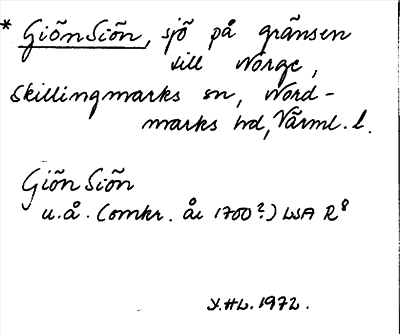 * Giön Siön, sjö på gränsen
till Norge,
Skillingmarks sn, Nord-
marks hd, Värml. l.
Giön Siön
u.å. (omkr. år 1700?) LSA R8
Y.HL. 1972.